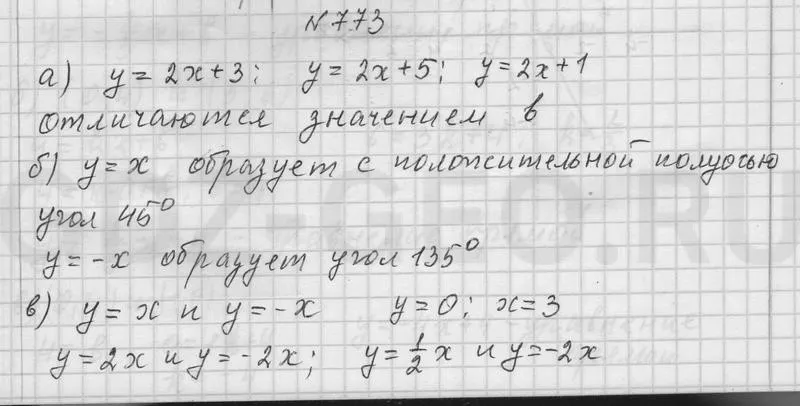 №773
а) y = 2x+3; y = 2x+5; y = 2x+1
отличаются значением в
б) y = x образует с положительной полуосью
угол 45°
y = -x образует угол 135°
в) y = x и y = -x y = 0; x = 3
y = 2x и y = -2x; y = 1/2 x и y = -2x